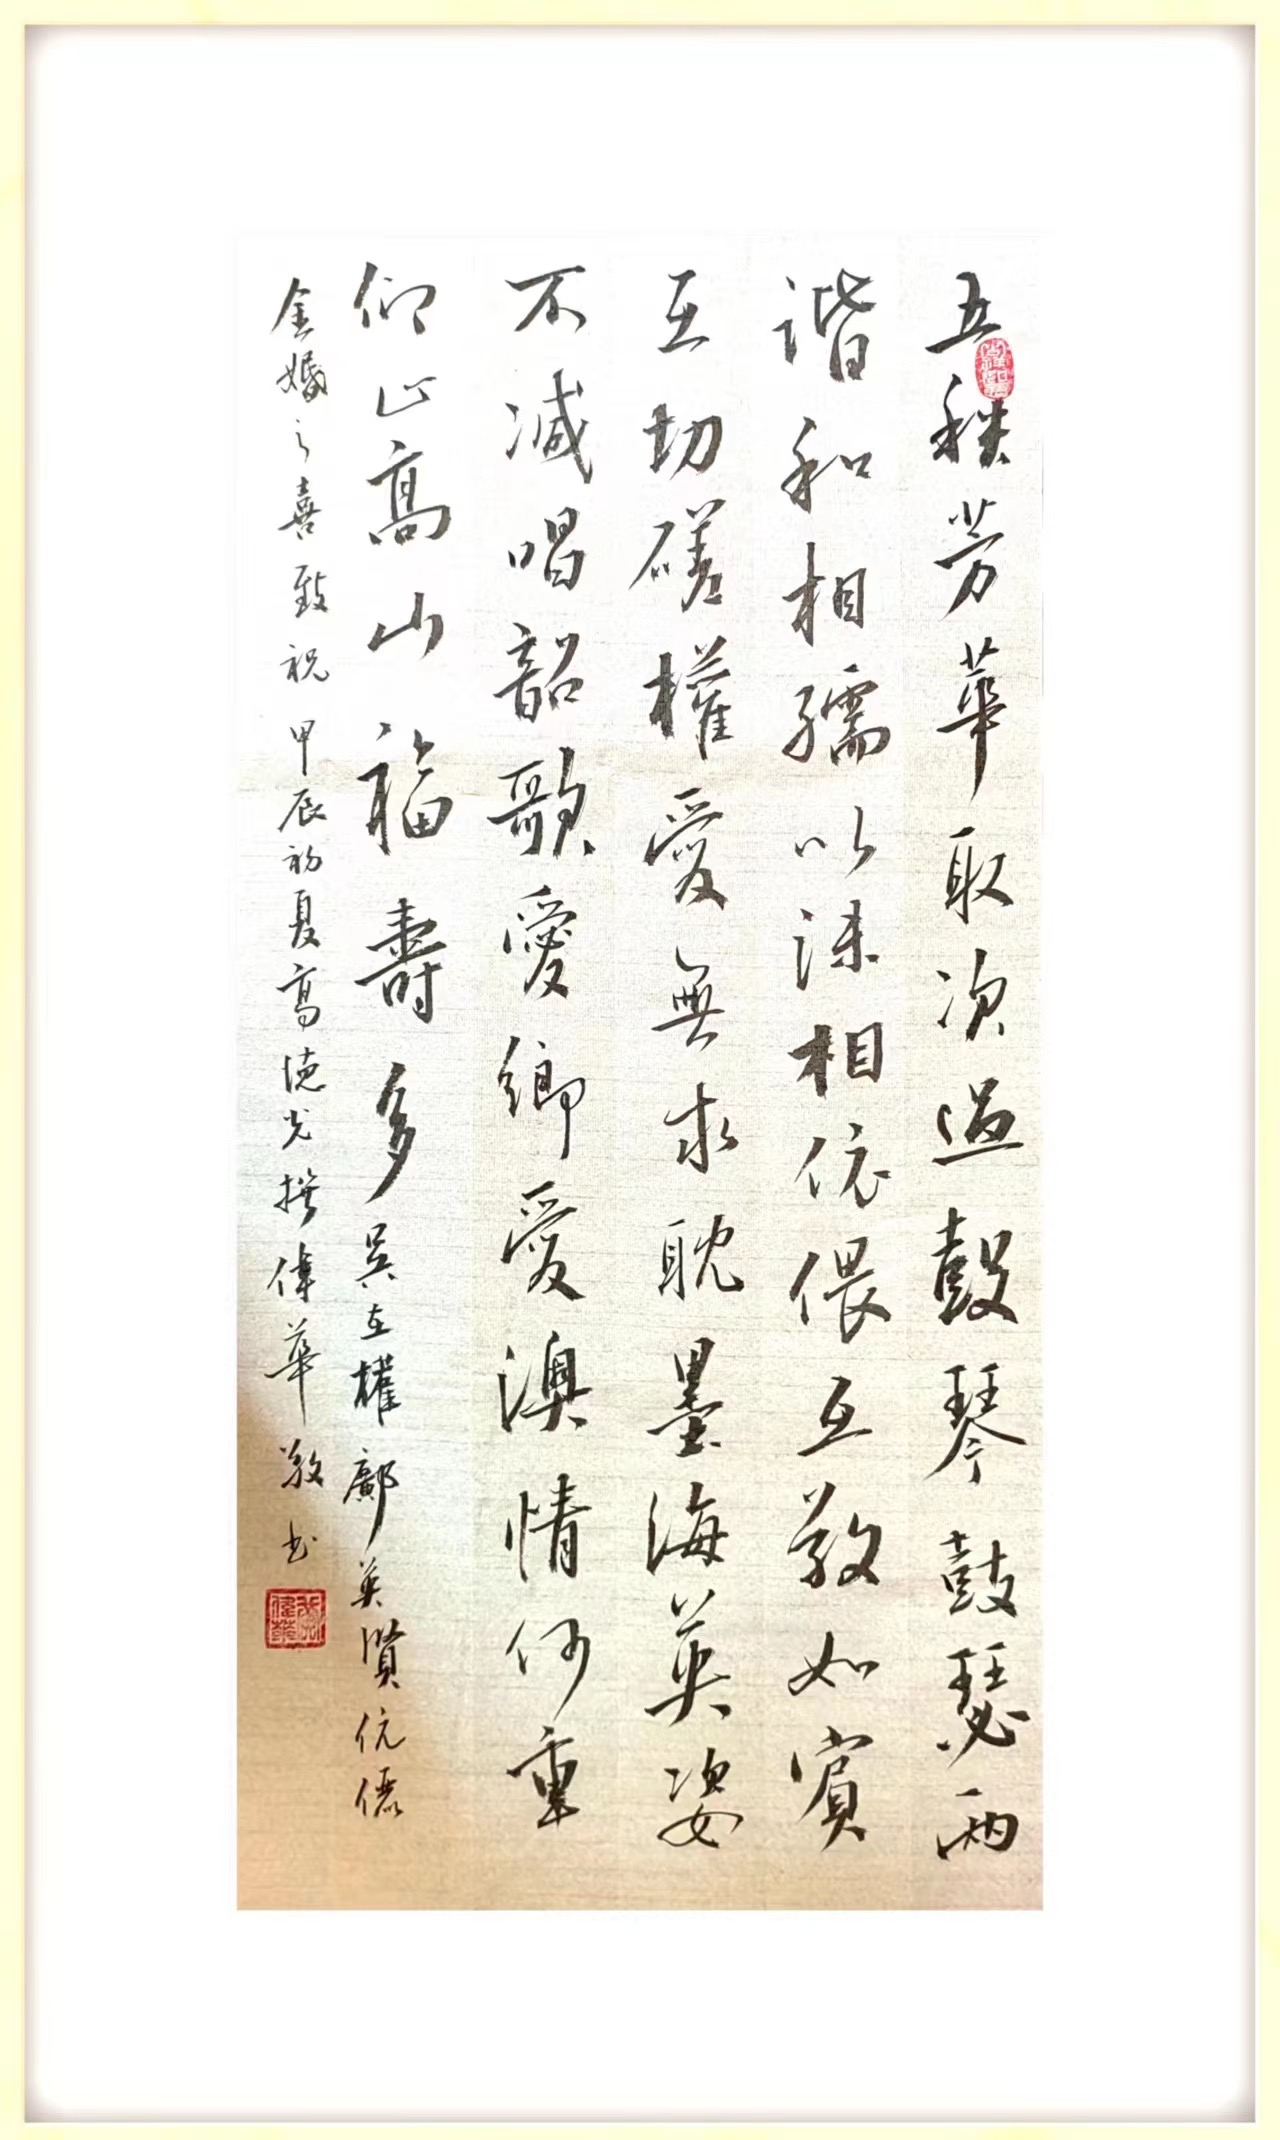 五秩芳華取次過鼓琴鼓瑟兩
諧和相孺以沫相依偎互敬如賓
互切磋權愛無求耽墨海英姿
不減唱韶歌愛鄉愛澳情何重
仰止高山福壽多吳在權鄺英賢伉儷
金婚之喜致祝甲辰初夏高德光撰偉華敬书